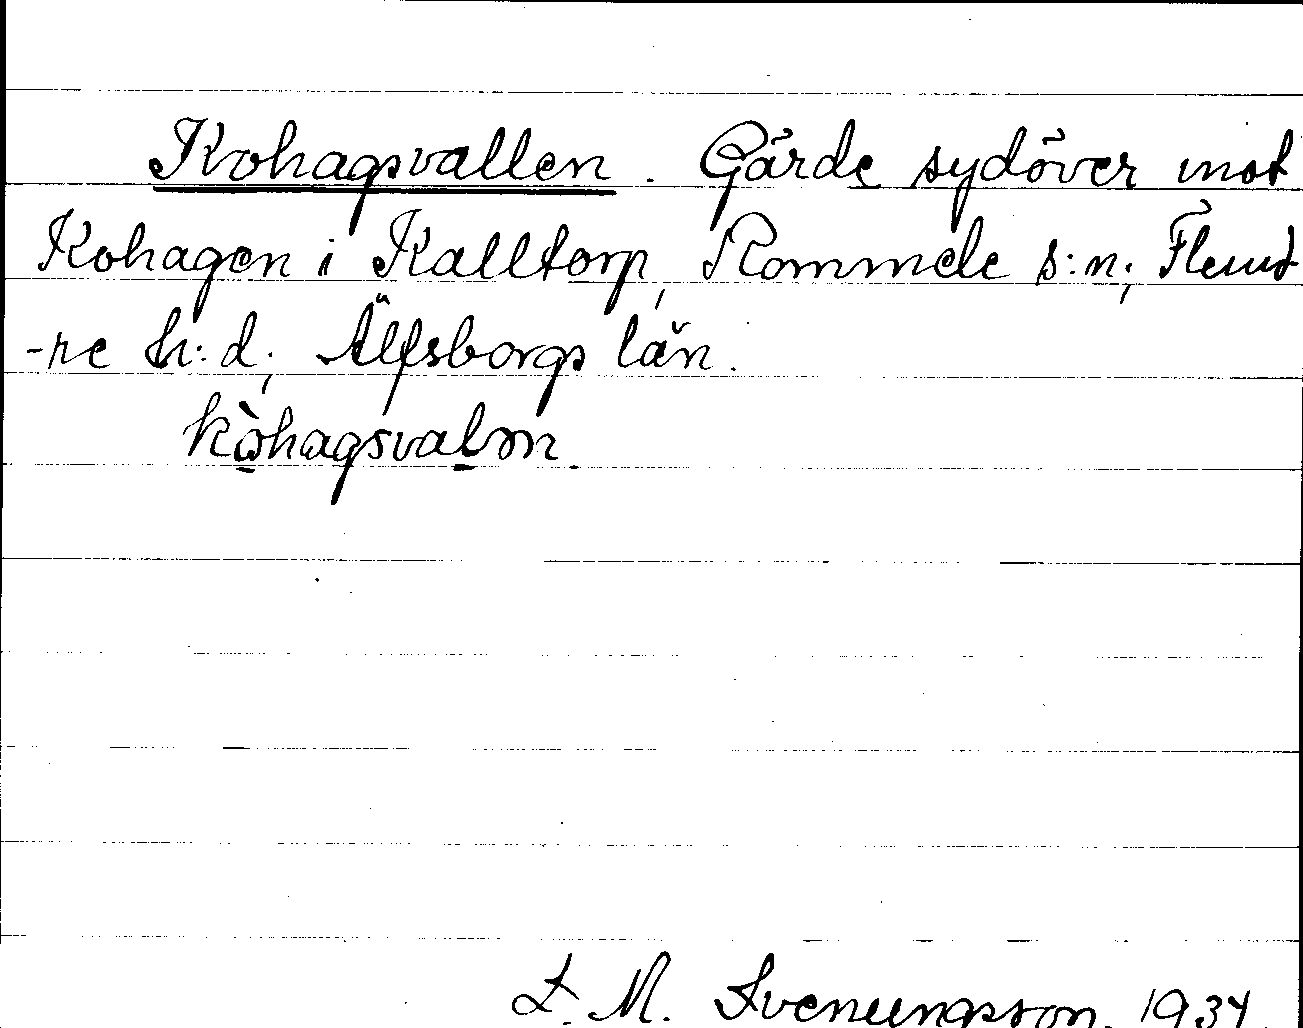 Kohagsvallen. Gärde sydöver mot
Kohagen i Kalltorp, Rommele s:n; Flund-
-re h:d; Älfsborgs län.
kòhagsvalən
L. M. Svenungsson. 1934.